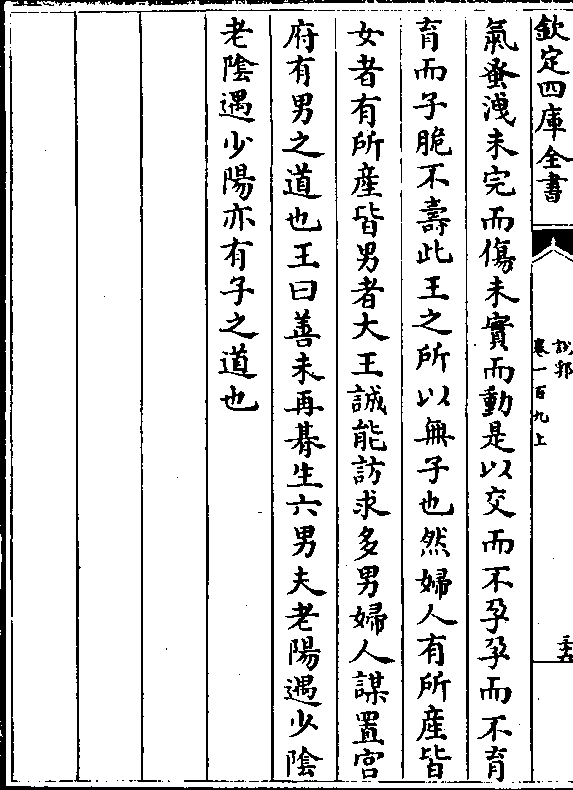 欽定四庫全書
說郛
卷一百九上
氣蚤洩未完而傷未實而動是以交而不孕孕而不育
育而子脆不壽此王之所以無子也然婦人有所產皆
女者有所產皆男者大王誠能訪求多男婦人謀置宮
府有男之道也王曰善未再朞生六男夫老陽遇少陰
老陰遇少陽亦有子之道也